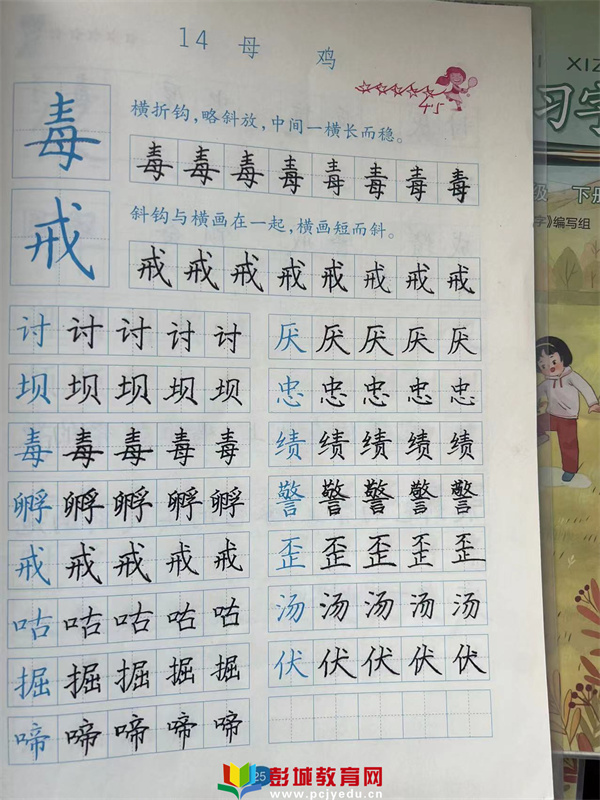 14 母 鸡
45
毒
横折钩，略斜放，中间一横长而稳。
毒 毒 毒 毒 毒 毒 毒 毒
戒
斜钩与横画在一起，横画短而斜。
戒 戒 戒 戒 戒 戒 戒 戒
讨 讨 讨 讨 讨
坝 坝 坝 坝 坝
毒 毒 毒 毒 毒
孵 孵 孵 孵 孵
戒 戒 戒 戒 戒
咕 咕 咕 咕 咕
掘 掘 掘 掘 掘
啼 啼 啼 啼 啼
厌 厌 厌 厌 厌
忠 忠 忠 忠 忠
绩 绩 绩 绩 绩
警 警 警 警 警
歪 歪 歪 歪 歪
汤 汤 汤 汤 汤
伏 伏 伏 伏 伏
25
XIZ
习字
级 下册
字》编写组
彭城教育网
www.pcjyedu.cn